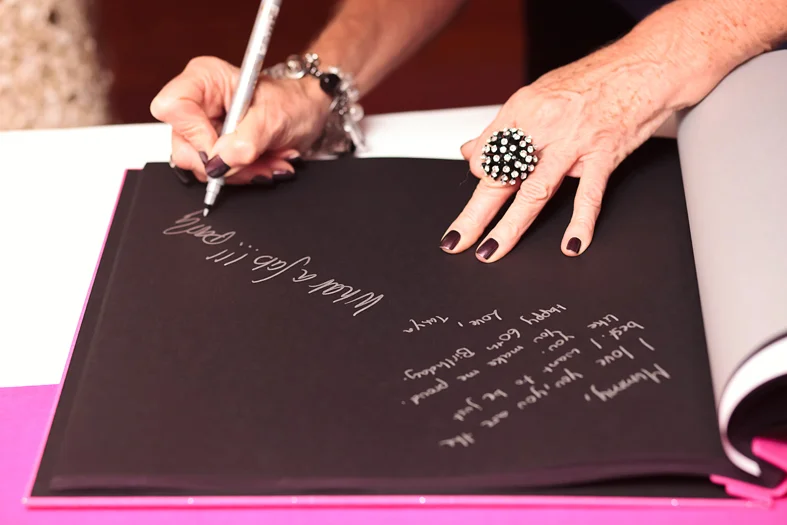 Mummy,
I love you, you are the
best. I want to be just
like you. You make me proud.
Happy 60th Birthday.
Love, Tonya
What a fab!!! party